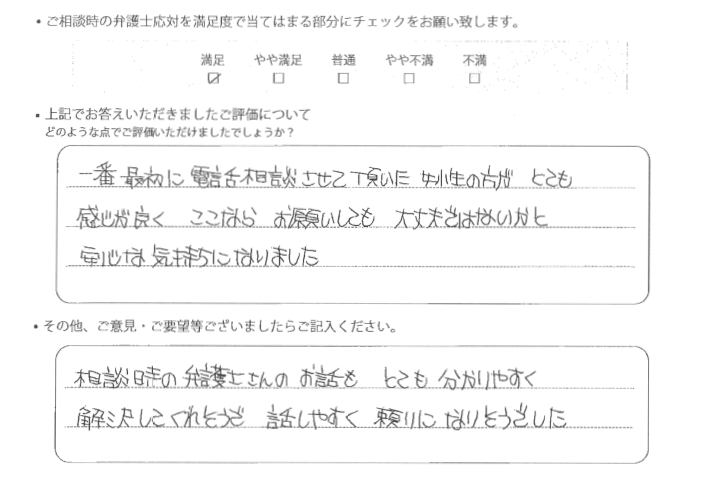 ・ご相談時の弁護士応対を満足度で当てはまる部分にチェックをお願い致します。
満足 やや満足 普通 やや不満 不満
☑ □ □ □ □
・上記でお答えいただきましたご評価について
どのような点でご評価いただけましたでしょうか？
一番最初に 電話相談させて頂いた 女性の方が とても
感じが良く ここなら お願いしても 大丈夫ではないかと
安心な気持ちになりました
・その他、ご意見・ご要望等ございましたらご記入ください。
相談時の弁護士さんの お話も とても 分かりやすく
解決してくれそうで 話しやすく 頼りに なりそうでした